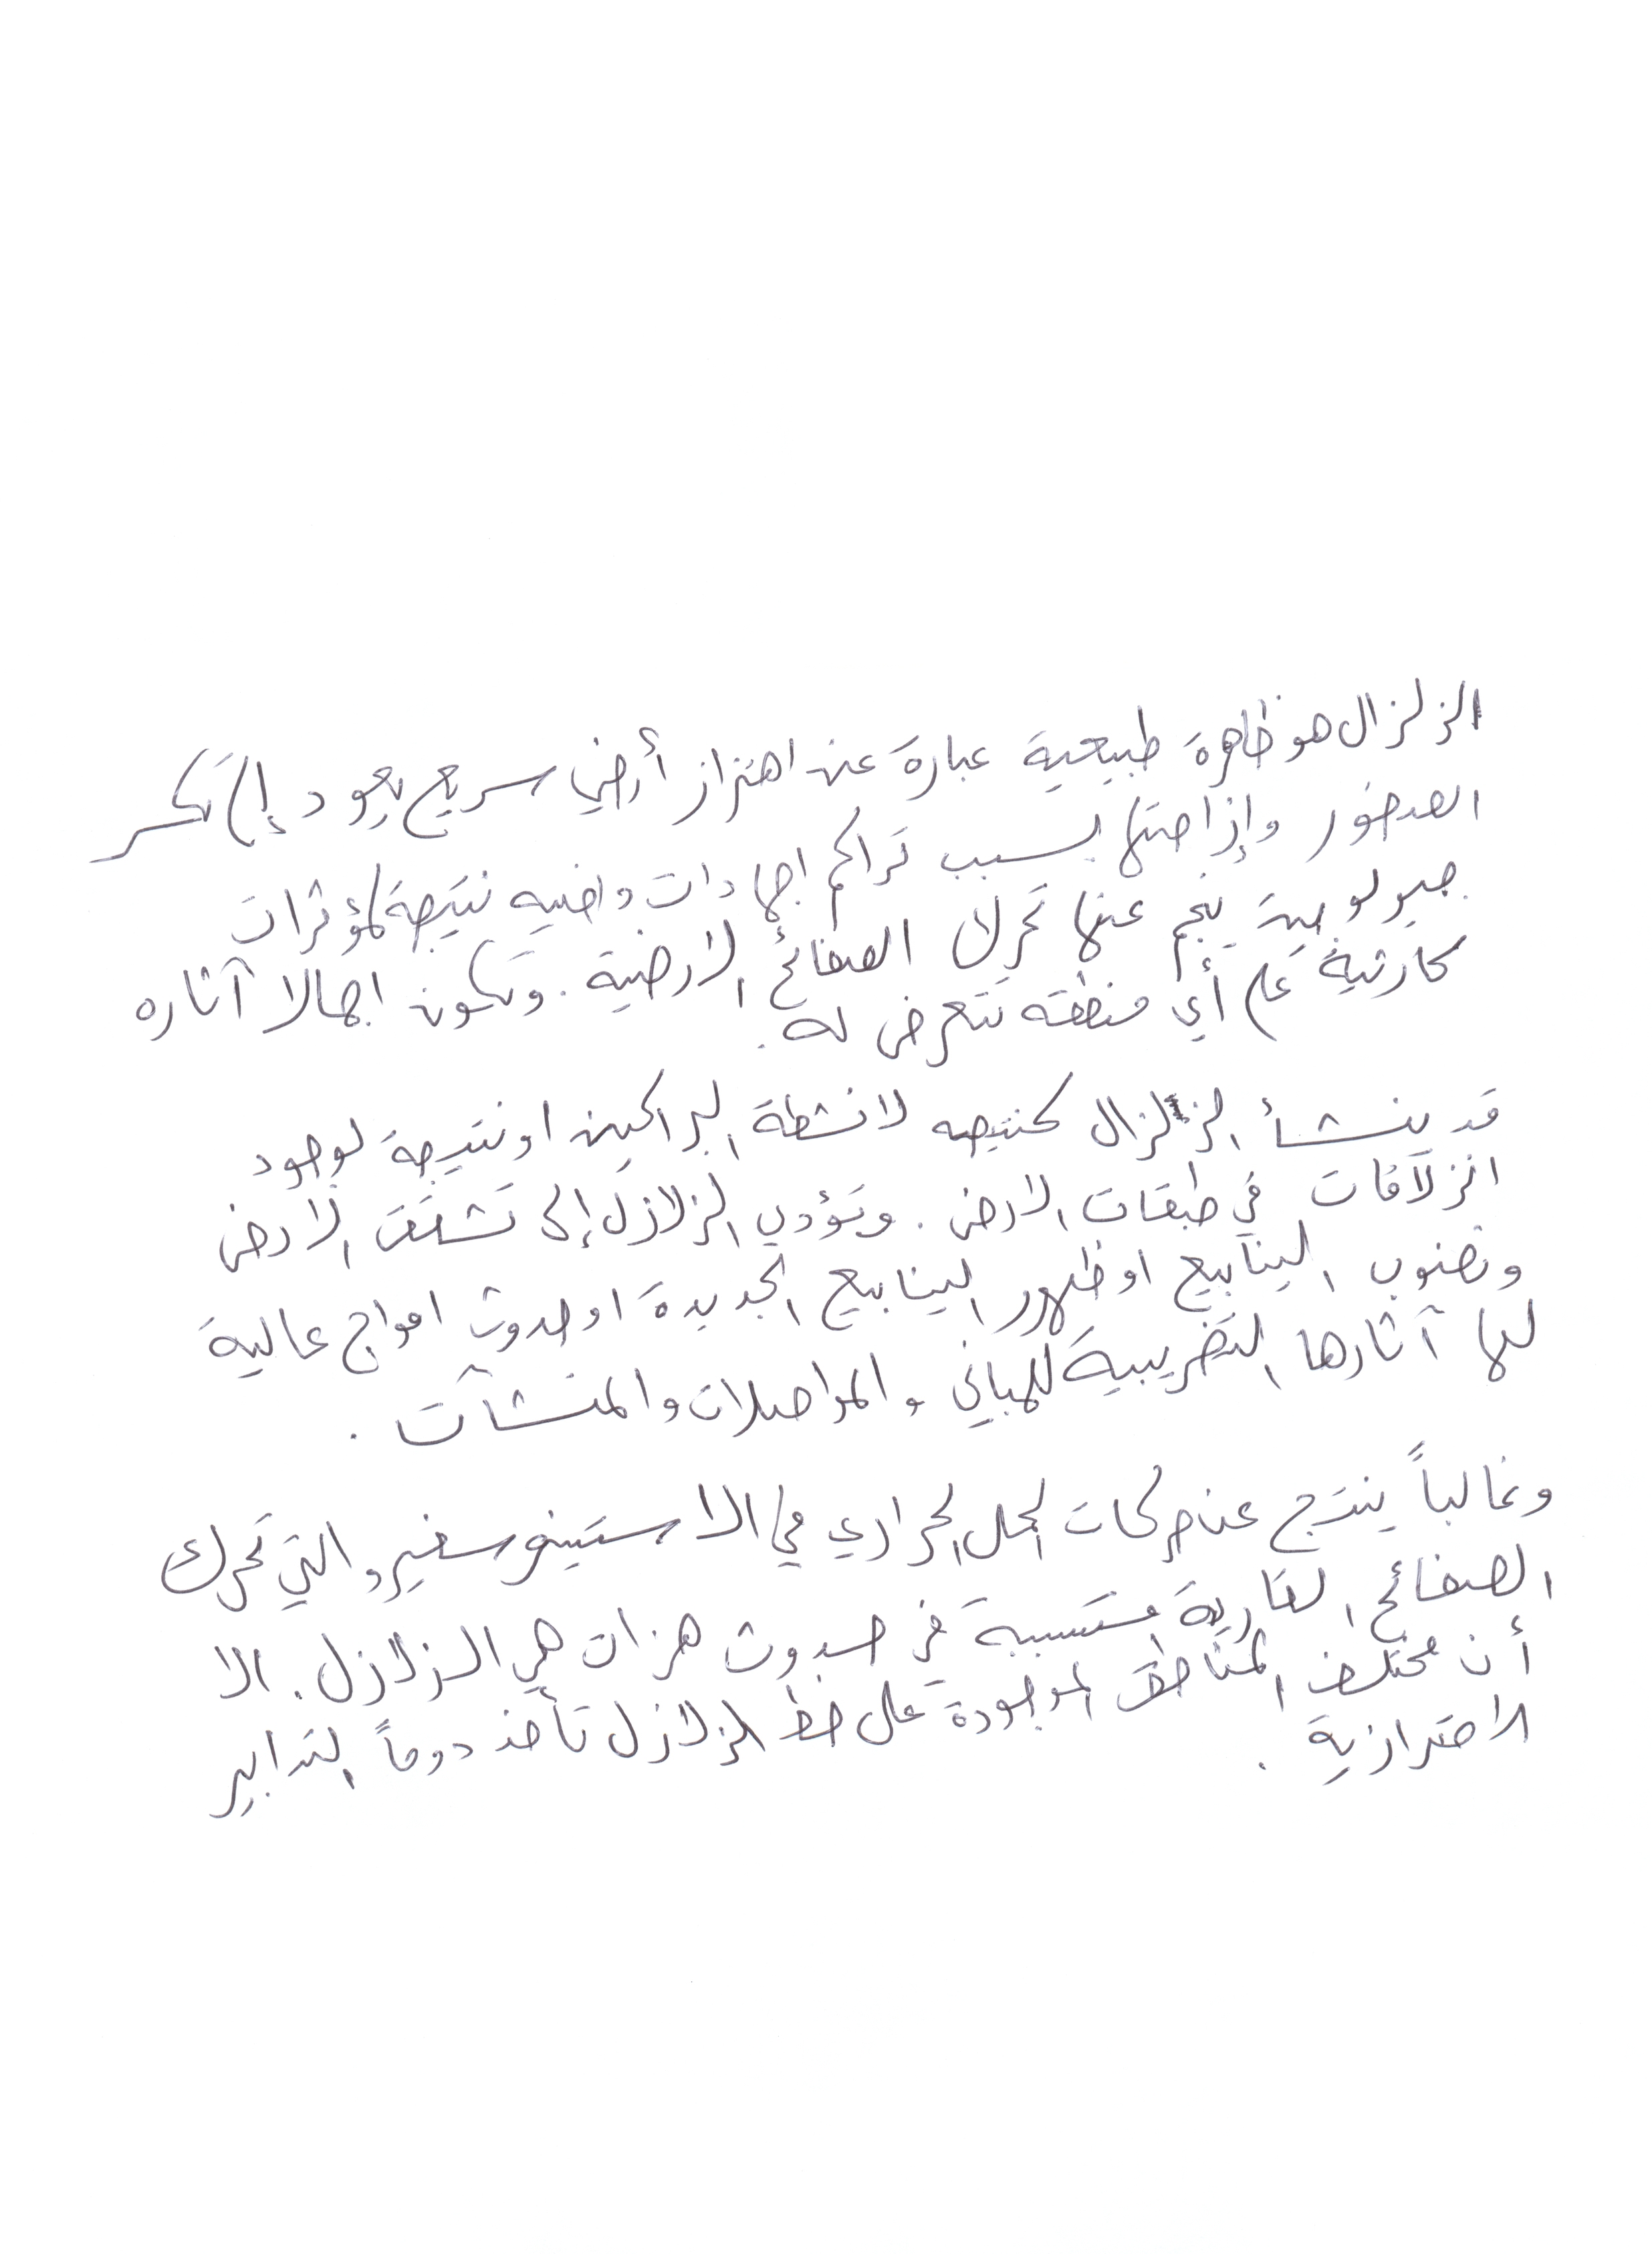 الزلزال هو ظاهرة طبيعية عبارة عن اهتزاز أرضي سريع يعود إلى تكسر
الصخور وإزاحتها بسبب تراكم اجهادات داخلية نتيجة لمؤثرات
جيولوجية ينجم عنها تحرك الصفائح الارضية. وتكون اجمالا آثاره
كارثية على أي منطقه تتعرض له.
قد ينشأ الزلزال كنتيجه لانشطة البراكين او نتيجة لوجود
انزلاقات في طبقات الارض. وتؤدي الزلازل إلى تشقق الارض
ونضوب الينابيع او ظهور الينابيع الجديدة او حدوث امواج عالية
لها آثارها التخريبية للمباني والمواصلات والمنشآت.
وغالباً ينتج عن حركات الحمل الحراري في الاستينوسفير والتي تحرك
الصفائح القارية متسببة في حدوث هزات هي الزلازل. الا
أن مختلف المناطق الموجودة على خط الزلازل تأخذ دوماً التدابير
الاحترازية.